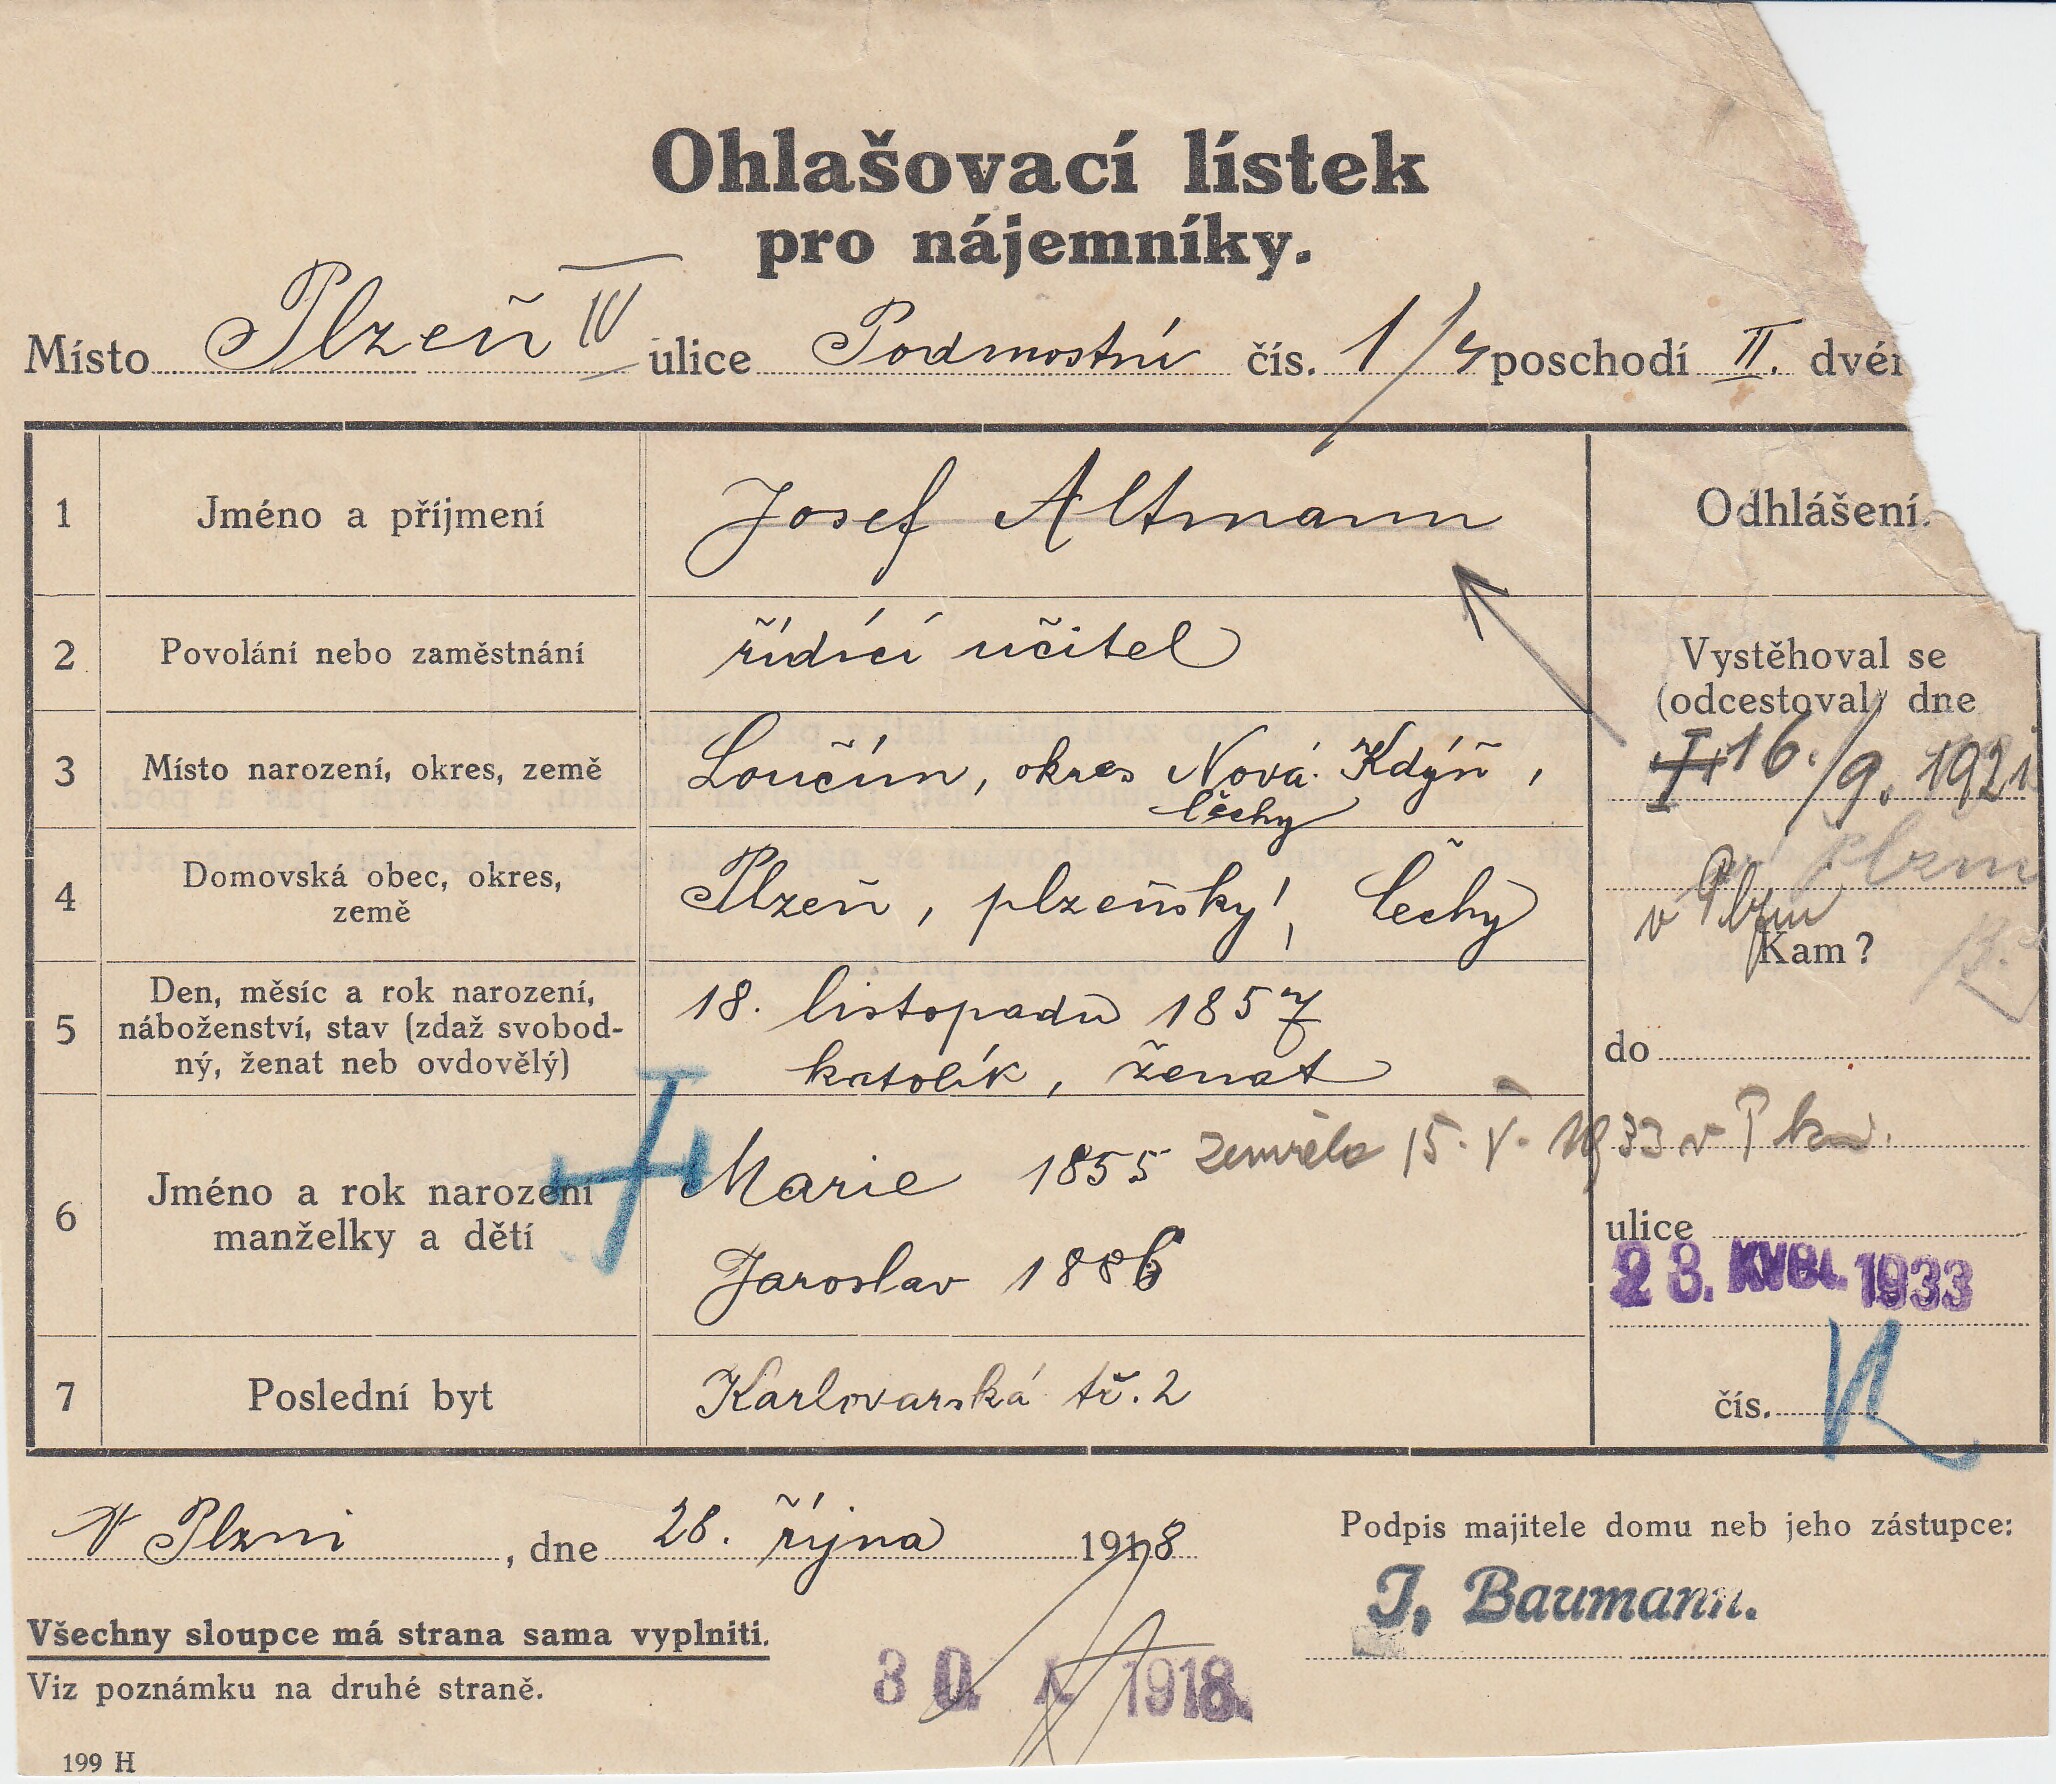 Ohlašovací lístek
pro nájemníky.
Místo Plzeň IV ulice Podmostní čís. 1/4 poschodí II. dvéř
1 Jméno a příjmení Josef Altmann
2 Povolání nebo zaměstnání řídící učitel
3 Místo narození, okres, země Loučim, okres Nová Kdýň,
Čechy
4 Domovská obec, okres,
země
Plzeň, plzeňský, Čechy
5 Den, měsíc a rok narození,
náboženství, stav (zdaž svobod-
ný, ženat neb ovdovělý)
18. listopadu 1857
katolík, ženat
6 Jméno a rok narození
manželky a dětí
Marie 1855 zemřela 15. V. 1933 v
Jaroslav 1886
7 Poslední byt Karlovarská tř. 2
Odhlášení.
Vystěhoval se
(odcestoval) dne
16./9. 1921
Plzni
v Plzni
Kam?
do
ulice
23. KVĚT. 1933
čís.
V Plzni, dne 28. října 1918
Podpis majitele domu neb jeho zástupce:
J. Baumann.
Všechny sloupce má strana sama vyplniti.
Viz poznámku na druhé straně.
30. X 1918.
199 H